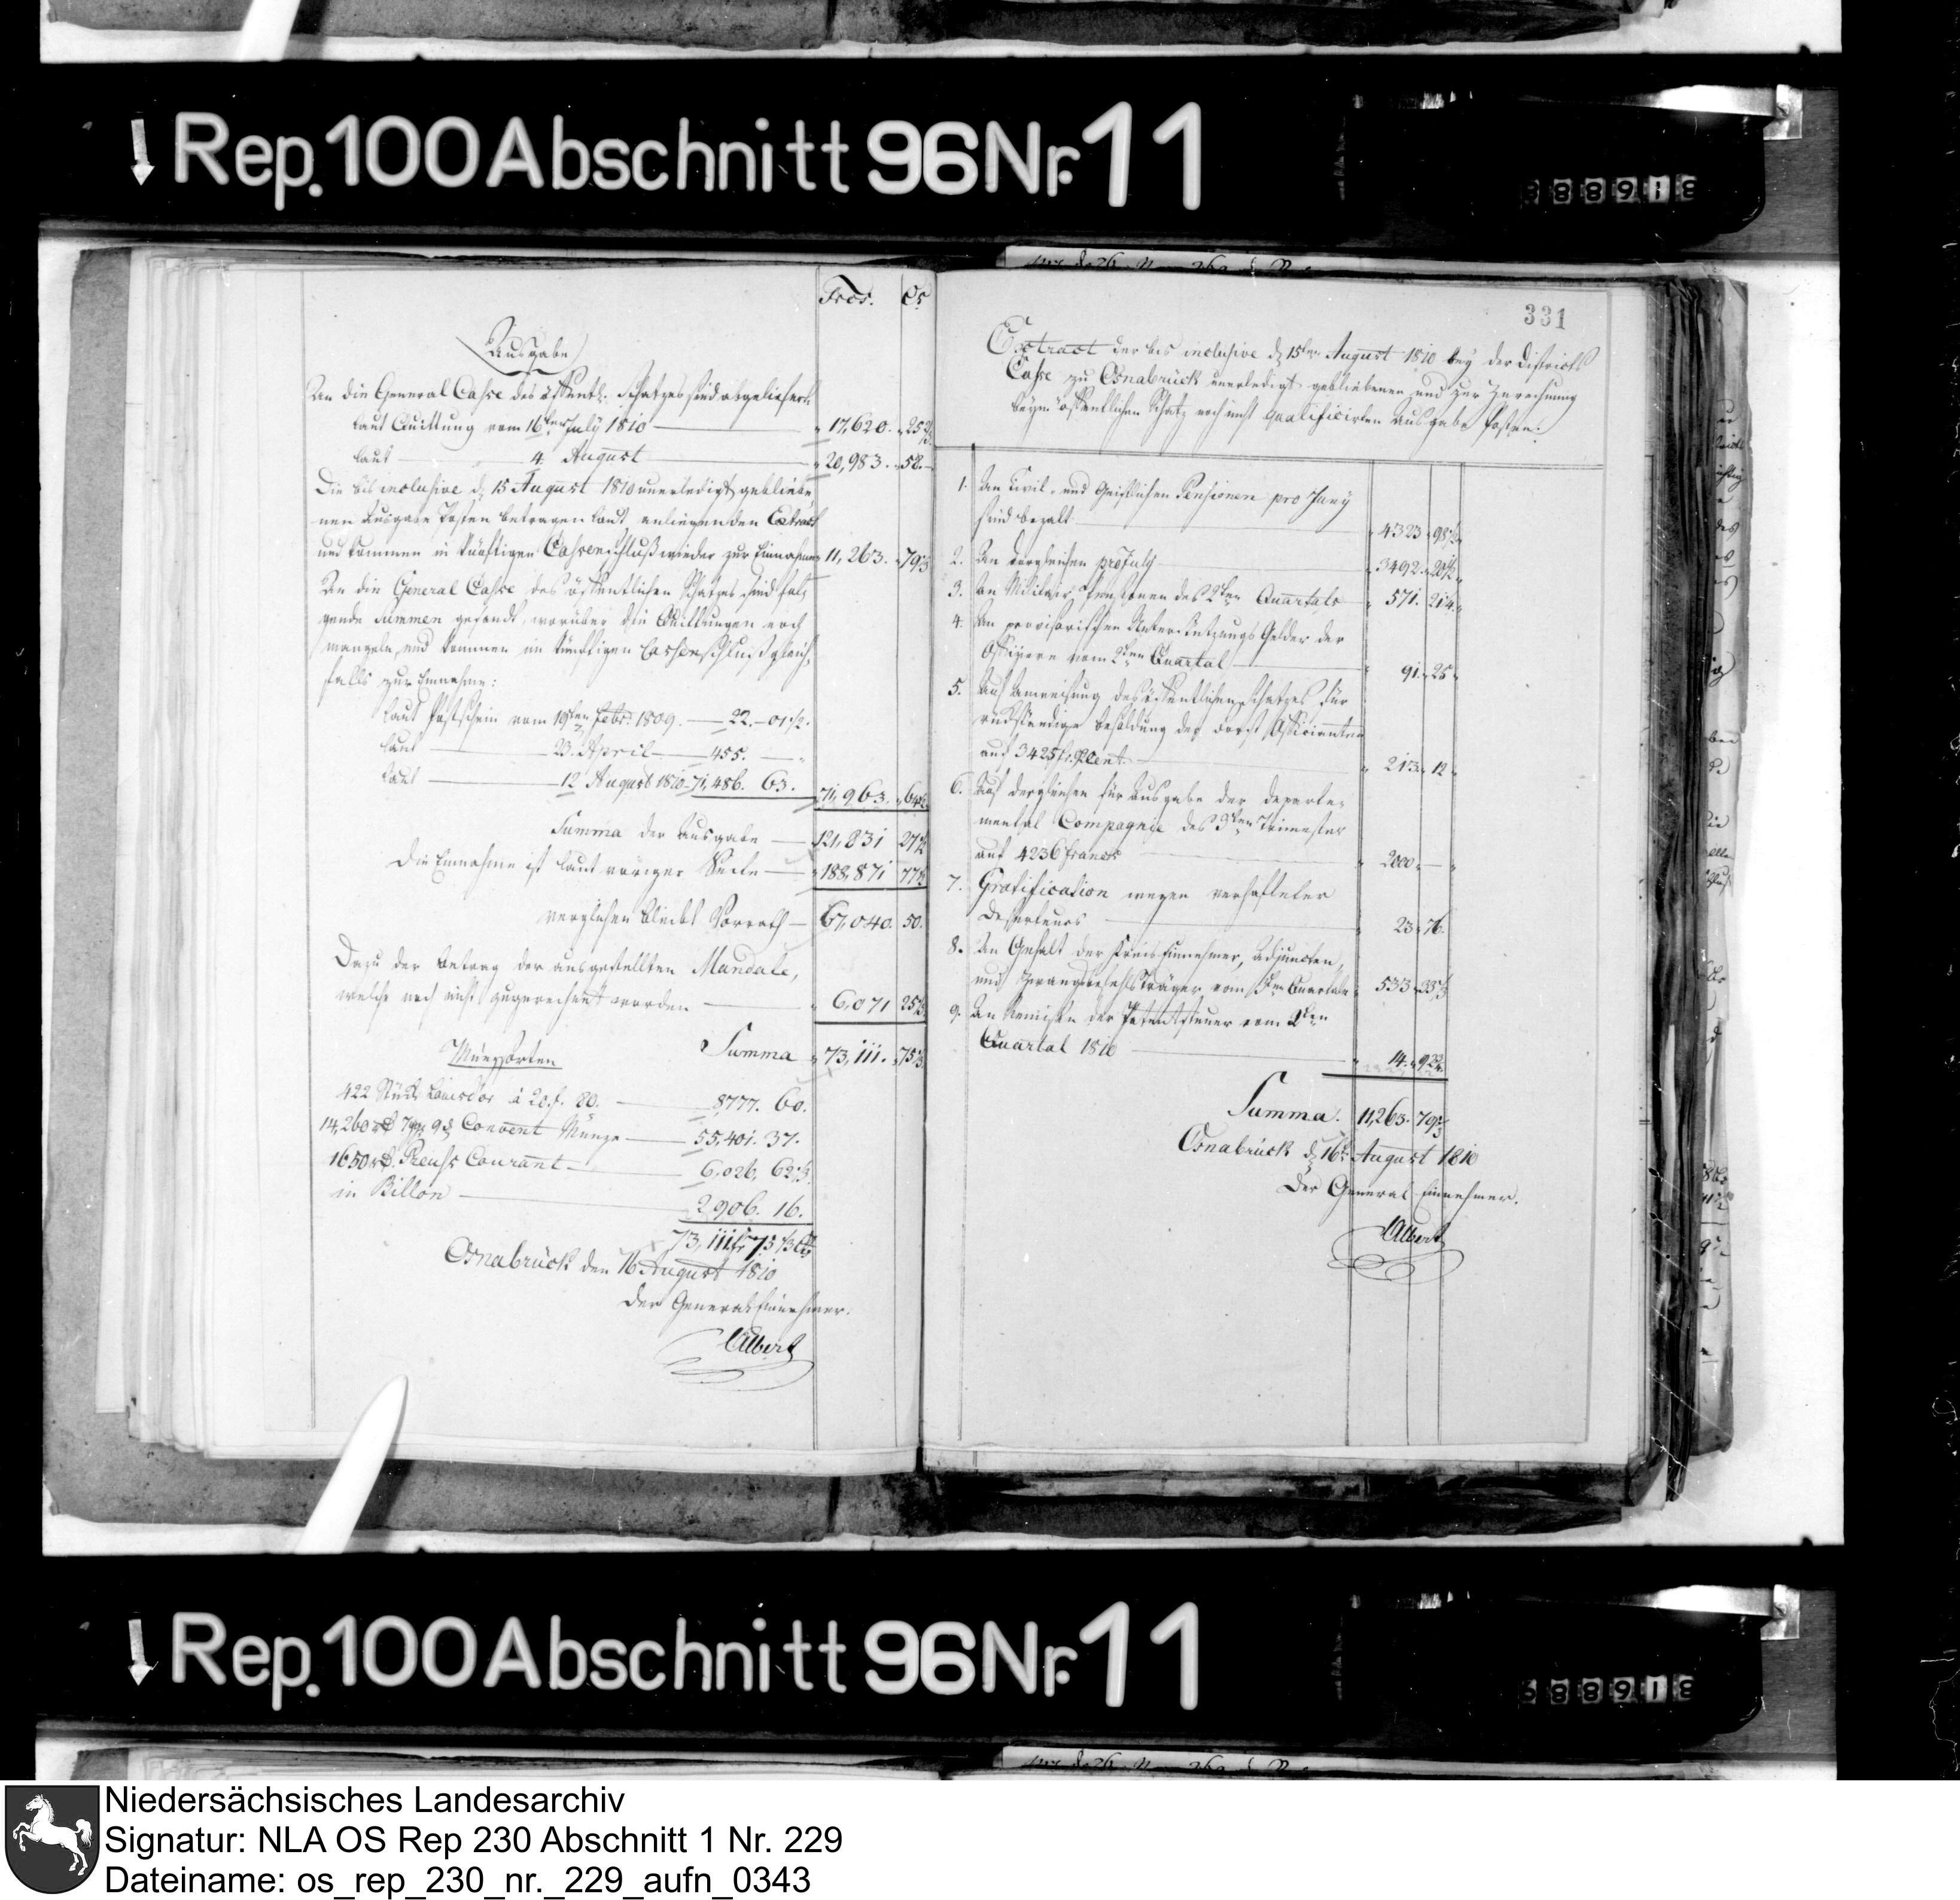 Rep. 100 Abschnitt 96 Nr. 11
88918
Frcs. Cs
Ausgabe
An die General Casse des öffentl. Schatzes sind abgeliefert
laut Quittung vom 16ten July 1810 17,620. 25
laut 4. August 20,983. 58.
Die bis inclusive d. 15 August 1810 unerledigt gebliebe-
nen Ausgabe Posten betragen laut anliegenden Extract
und kommen im künftigen Cassenschluß wieder zur Einnahme 11,263. 79 1/3
An die General Casse des öffentlichen Schatzes sind fol-
gende Summen gesandt, worüber die Quittungen noch
mangeln, und kommen im künftigen Cassenschluß gleich-
falls zur Einnahme:
laut Postschein vom 19ten Febr. 1809. 22. 01 1/2.
laut 23. April 455.
laut 12 August 1810 71,486. 63.
71,963. 64 1/2
Summa der Ausgabe 121,831 27
Die Einnahme ist laut voriger Seite 188,871 77
verglichen bleibt Vorrath 67,040. 50.
Dazu der Betrag der ausgestellten Mandate,
welche noch nicht zugerechnet worden 6,071 25
Summa 73,111. 75
Münzsorten
422 Stück Louisdor à 20.f. 80. 8777. 60.
14,260 rt 7 ggr 9 d Convent Münze 55,401. 37.
1650 rt. Preuss Courant 6,026, 62 1/3.
in Billon 2,906. 16.
73,111 fr 75 1/3 Ct
Osnabrück den 16 August 1810
Der General Einnehmer.
Albert
331
Extract der bis inclusive d. 15ten August 1810 bey der Districts
Casse zu Osnabrück unerledigt gebliebenen und zur Zurechnung
beym öffentlichen Schatz noch nicht qualificirten Ausgabe Posten.
1. An Civil- und Geistlichen Pensionen pro Juny
sind bezalt 4323 98
2. An dergleichen pro July 3492. 20 1/2
3. An Militair Pensionen des 2ten Quartals 571. 214.
4. An provisorischen Unterstützungs Gelder der
Officiere vom 2ten Quartal 91. 25
5. Auf Anweisung des öffentlichen Schatzes für
rückständige Besoldung der Forst Officianten
auf 3425 fr. Cent. 213. 12
6. Auf dergleichen für Ausgabe der Departe-
mental Compagnie des 3ten Trimester
auf 4236 francs 2000.
7. Gratification wegen verhafteter
Deserteurs 23. 76.
8. An Gehalt der Kreis Einnehmer, Adjuncten,
und Zwangsbefehls Träger vom Quartale 533. 33 1/3
9. An Remisen der Patentsteuer vom 2ten
Quartal 1810 14. 92
Summa. 11,263. 79 1/3
Osnabrück d. 16t August 1810
Der General Einnehmer.
Albert
Rep. 100 Abschnitt 96 Nr. 11
88918
Niedersächsisches Landesarchiv
Signatur: NLA OS Rep 230 Abschnitt 1 Nr. 229
Dateiname: os_rep_230_nr._229_aufn_0343